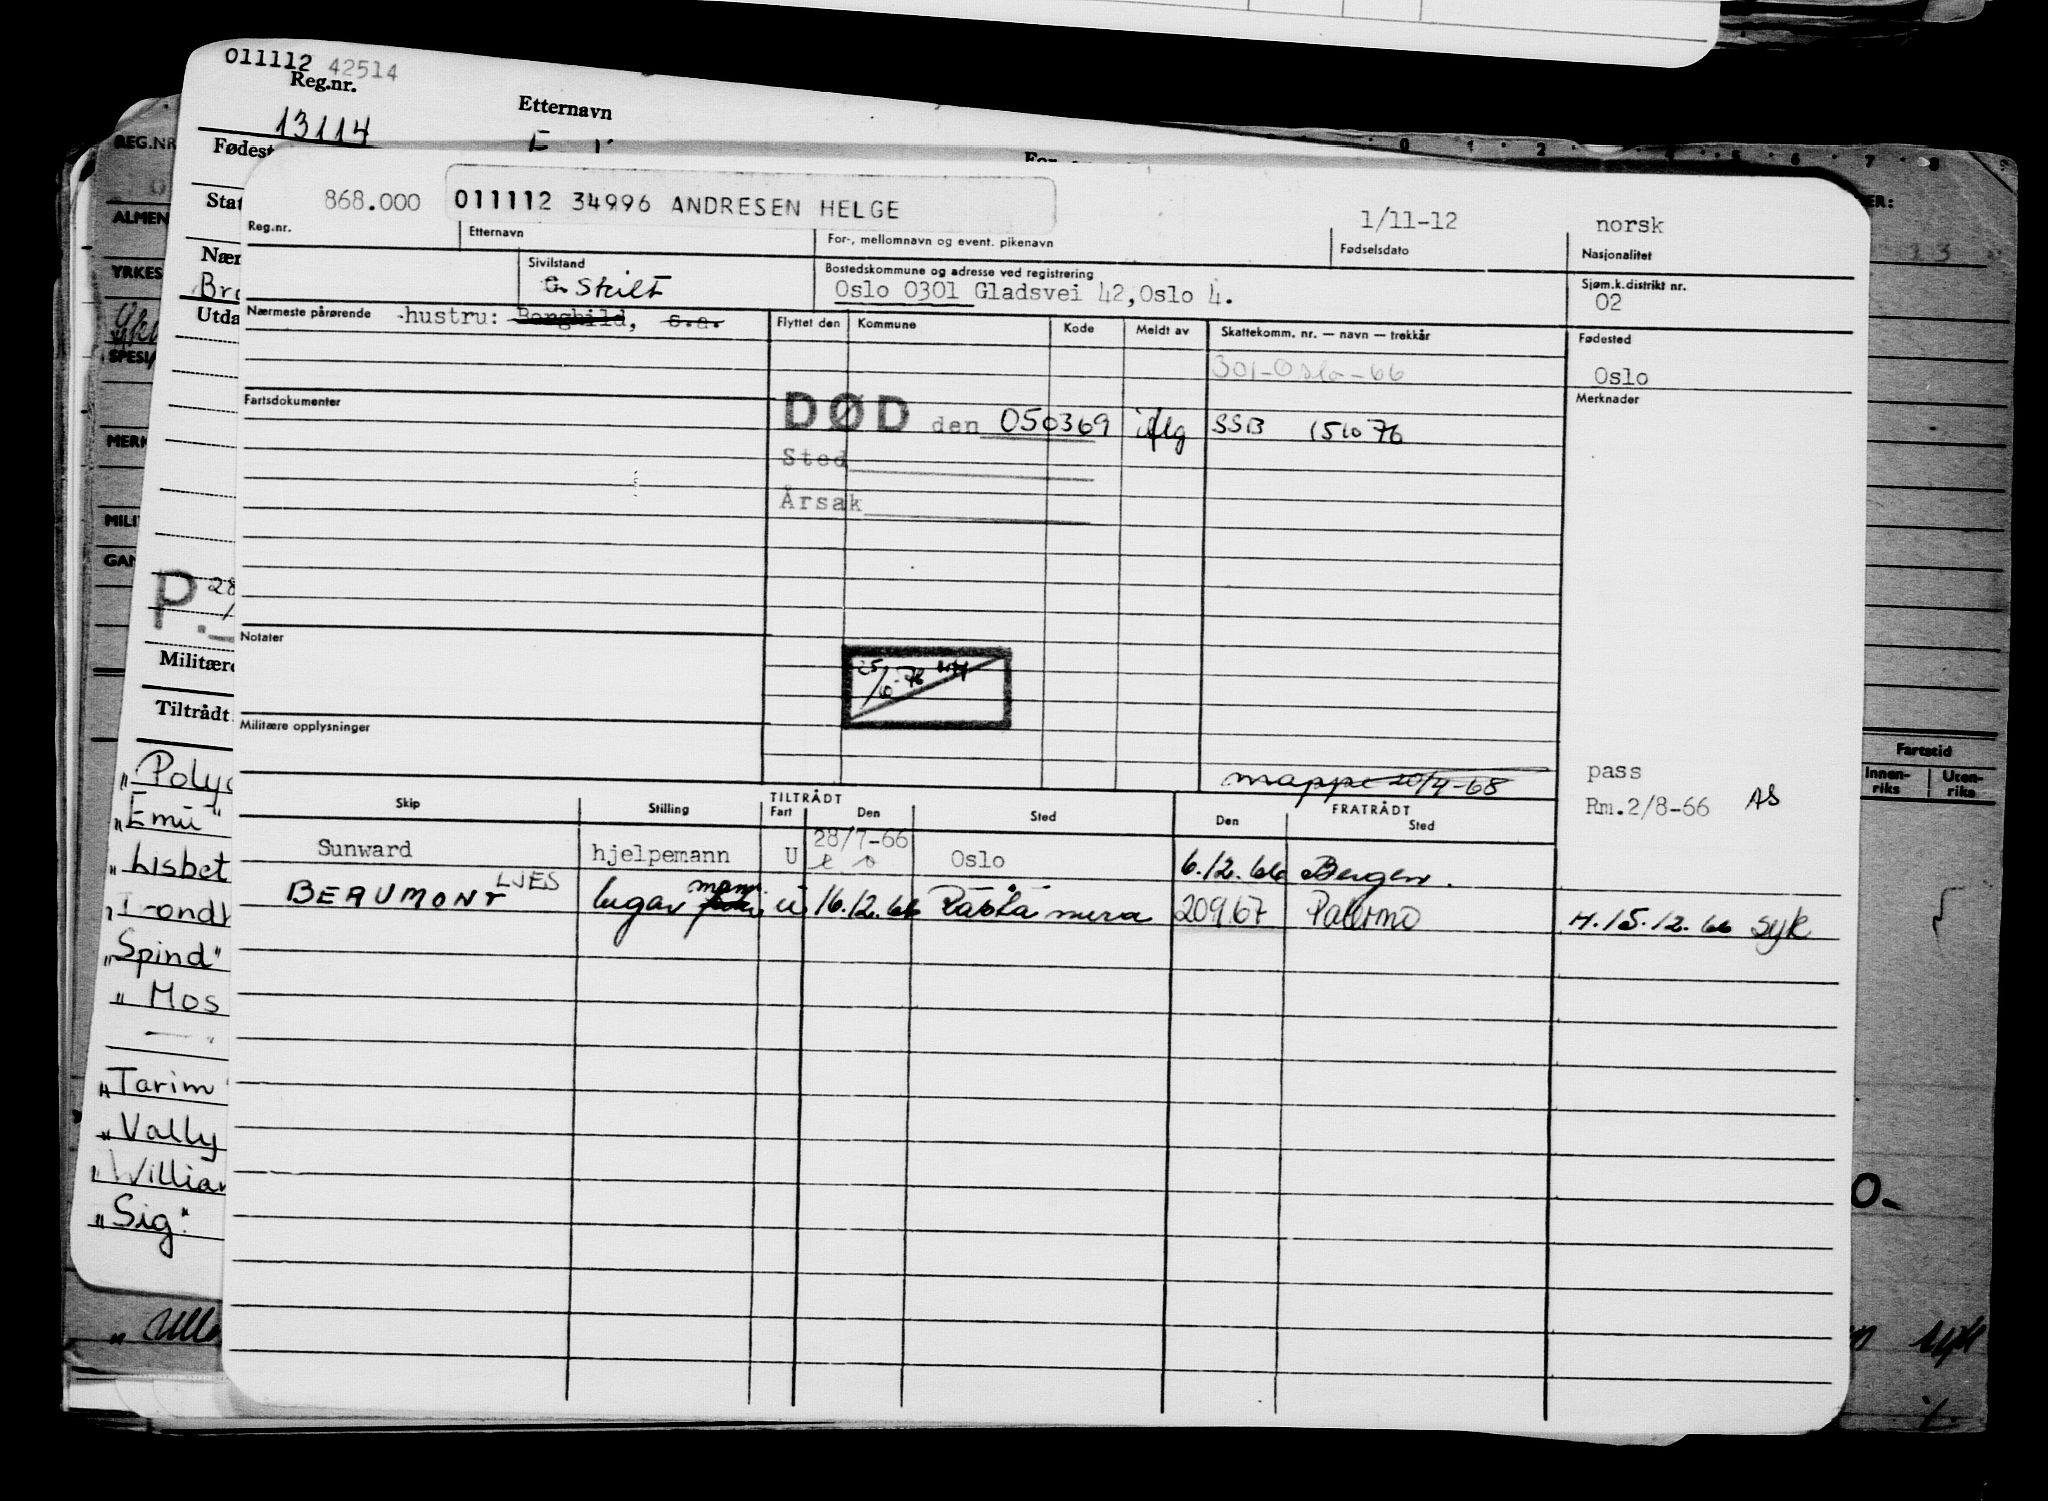 011112 42514
Reg.nr.
Etternavn
13114
REG.NR
Fødest
868.000 011112 34996 ANDRESEN HELGE 1/11-12 norsk
Reg.nr. Etternavn For-, mellomnavn og event. pikenavn Fødselsdato Nasjonalitet
ALMEN
Stat
Sivilstand Bostedskommune og adresse ved registrering Sjøm.k.distrikt nr.
YRKES
Nær
G. Skilt Oslo 0301 Gladsvei 42, Oslo 4. 02
Utda
Nærmeste pårørende -hustru: Borghild, s.a. Flyttet den Kommune Kode Meldt av Skattekomm. nr. — navn — trekkår Fødested
SPESI
301-Oslo-66 Oslo
Fartsdokumenter Merknader
DØD den 050369 iflg SSB 151076
MERK
Sted
Årsak
MILI
GAN
P. 28
Notater
Militære
25/10-76
Tiltrådt
Militære opplysninger
Fartstid
Innen-riks Uten-riks
mappe 20/4-68 pass
Rm.2/8-66 AS
Skip Stilling TILTRÅDT Fart Den Sted FRATRÅDT Den Sted
Sunward hjelpemann U 28/7-66 Oslo 6.12.66 Bergen.
LJES
BEAUMONT lugar mann. U 16.12.66 Rastanura 20967 Palermo H.15.12.66 syk
"Poly
"Emu"
"Lisbet
"Trondh
"Spind"
"Mos
"Tarim"
"Vally
"William
"Sig."
"Ulle